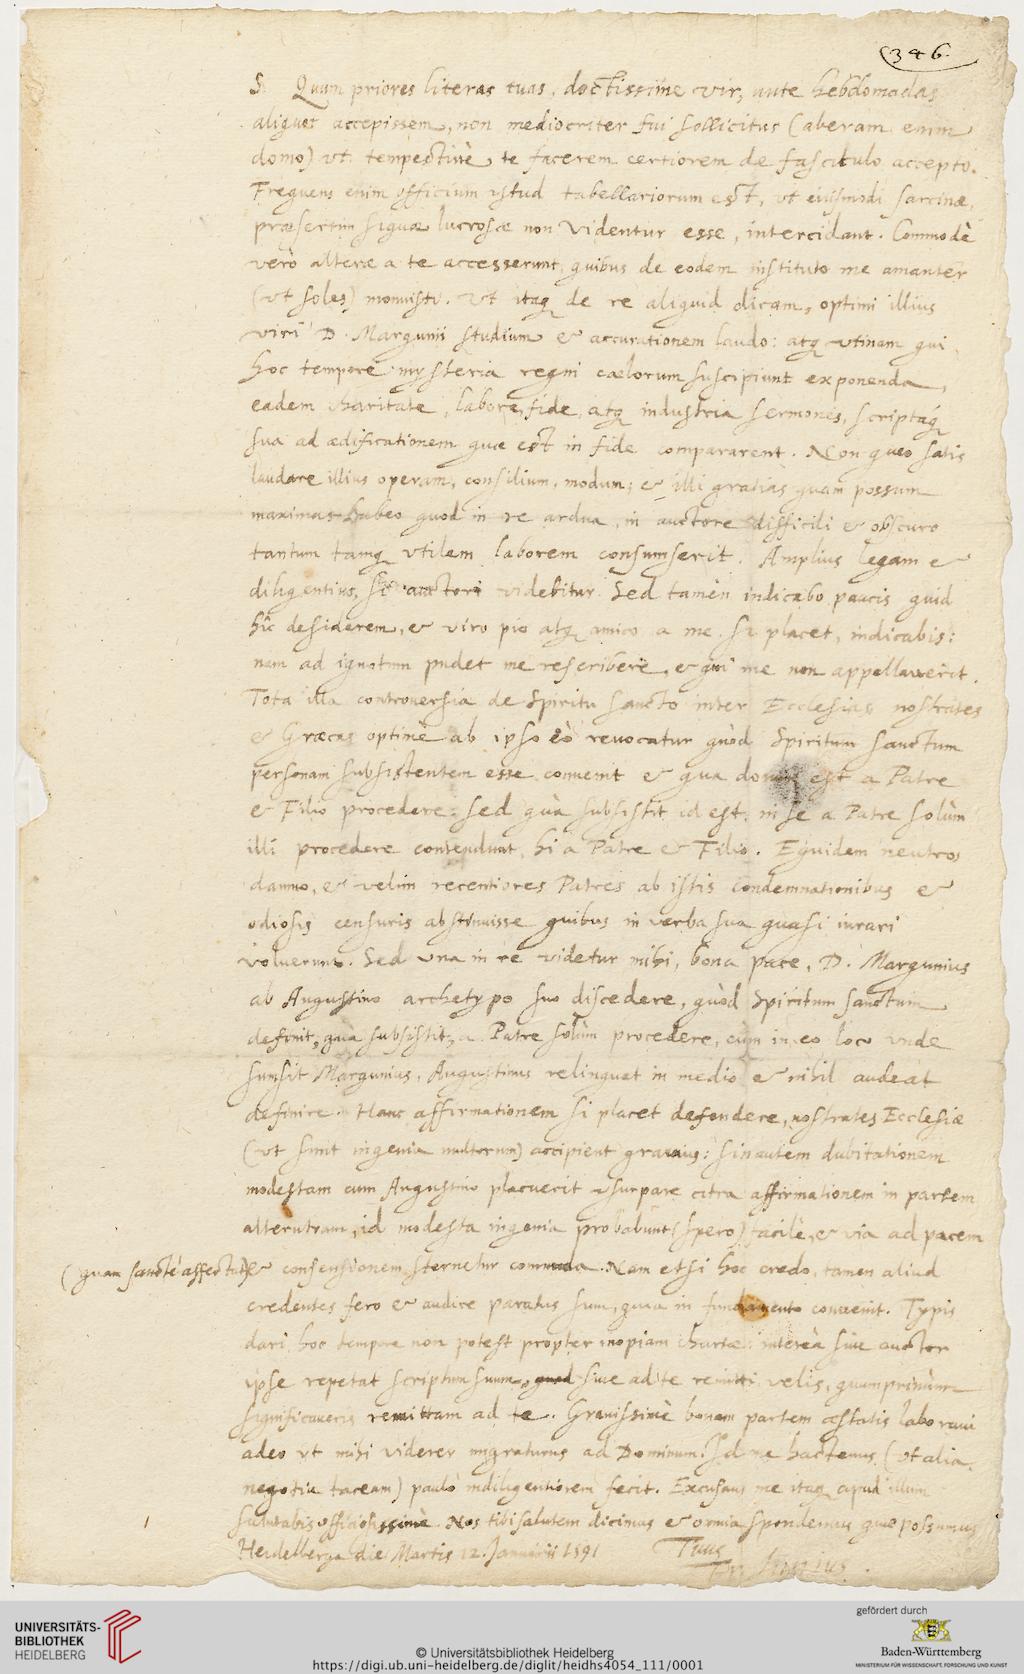 346.
S. Quum priores literas tuas, doctissime vir, ante hebdomadas
aliquot accepissem, non mediocriter fui sollicitus (aberam enim
domo) vt tempestivè te facerem certiorem de fasciculo accepto.
Frequens enim officium istud tabellariorum est, vt eiusmodi sarcinæ,
præsertim siquæ lucrosæ non videntur esse, intercidant. Commodè
verò alteræ a te accesserunt, quibus de eodem instituto me amanter
(vt soles) monuisti. Vt itaq de re aliquid dicam, optimi illius
viri D. Margunii studium & accurationem laudo: atq vtinam qui
hoc tempore mysteria regni cælorum suscipiunt exponenda,
eadem charitate, labore, fide, atq industria sermones, scriptaq
sua ad ædificationem quæ est in fide compararent. Non queo satis
laudare illius operam, consilium, modum; & illi gratias quam possum
maximas habeo quod in re ardua, in auctore difficili & obscuro
tantum tamq vtilem laborem consumserit. Amplius legam &
diligentius, si auctori videbitur. Sed tamen indicabo paucis quid
hîc desiderem, & viro pio atq amico a me, si placet, indicabis:
nam ad ignotum pudet me rescribere, & qui me non appellaverit.
Tota illa controversia de Spiritu sancto inter Ecclesias nostrates
& Græcas optimè ab ipso eò revocatur quòd Spiritum sanctum
personam subsistentem esse convenit & qua donum est a Patre
& Filio procedere: sed quà subsistit id est, in se a Patre solùm
illi procedere contendunt, hi a Patre & Filio. Equidem neutros
damno, & velim recentiores Patres ab istis condemnationibus &
odiosis censuris abstinuisse quibus in verba sua quasi iurari
voluerunt. Sed una in re videtur mihi, bona pace, D. Margunius
ab Augustino archetypo suo discedere, quòd Spiritum sanctum
definit, quà subsistit, a Patre solùm procedere, cùm in eo loco vnde
sumsit Margunius, Augustinus relinquat in medio & nihil audeat
definire. Hanc affirmationem si placet defendere, nostrates Ecclesiæ
(vt sunt ingenia multorum) accipient gravius: sin autem dubitationem
modestam cum Augustino placuerit vsurpare citra affirmationem in partem
alterutram, id modesta ingenia probabunt (spero) facilè, & via ad pacem
(quam sanctè affectat) & consensionem sternetur commoda. Nam etsi hoc credo, tamen aliud
credentes fero & audire paratus sum, quia in fundamento convenit. Typis
dari hoc tempore non potest propter inopiam chartæ: interea sive auctor
ipse repetat scriptum suum, sive ad te remitti velis, quamprimùm
significaveris remittam ad te. Gravissimè bonam partem æstatis laboravi
adeo vt mihi viderer migraturus ad Dominum. Id me hactenus (vt alia
negotia taceam) paulò indiligentiorem fecit. Excusans me itaq apud illum
salutabis officiosissimè. Nos tibi salutem dicimus & omnia spondemus quæ possumus
Heidelbergæ die Martis 12. Januarii 1591 Tuus
Fr. Junius.
UNIVERSITÄTS-
BIBLIOTHEK
HEIDELBERG
© Universitätsbibliothek Heidelberg
https://digi.ub.uni-heidelberg.de/diglit/heidhs4054_111/0001
gefördert durch
Baden-Württemberg
MINISTERIUM FÜR WISSENSCHAFT, FORSCHUNG UND KUNST